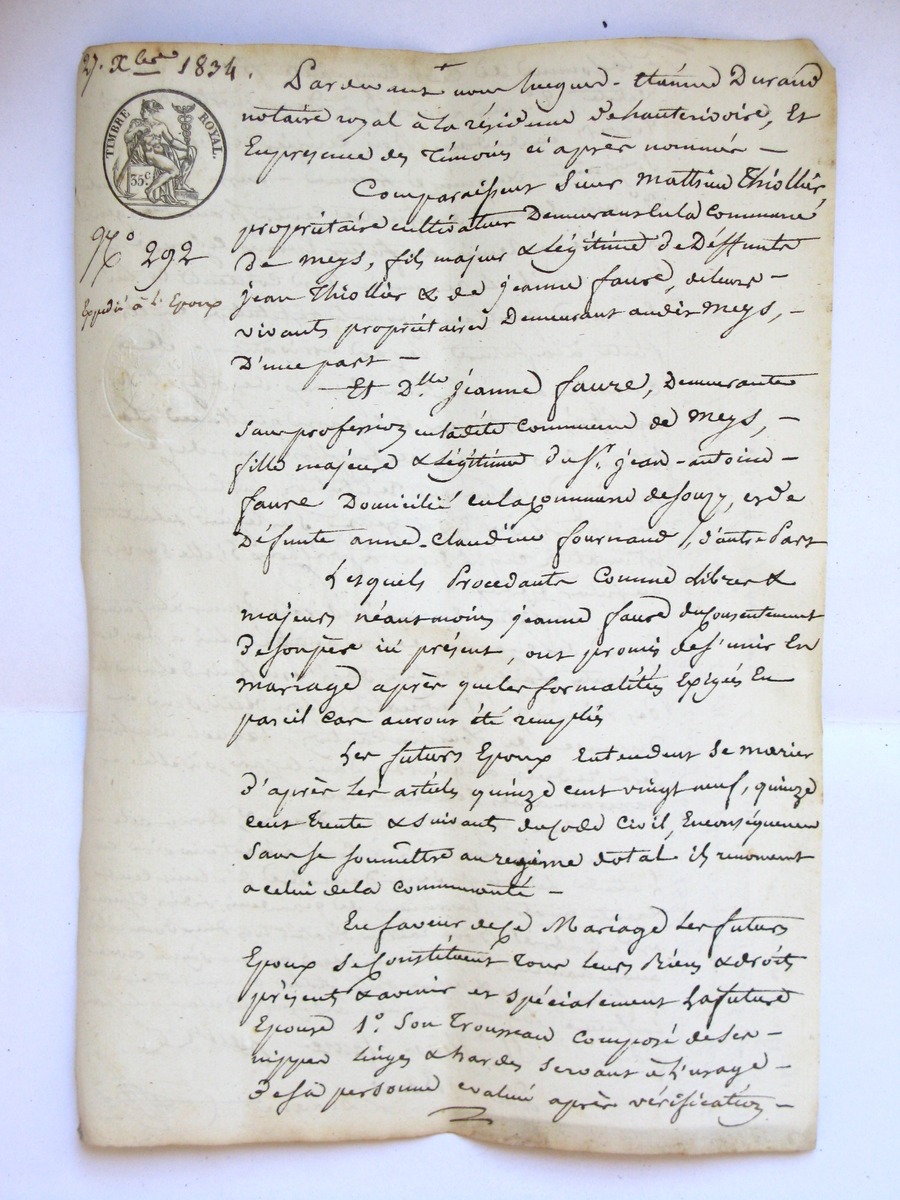 27. Xbre 1834.
TIMBRE ROYAL.
35 c
No 292
Expédié à l'Epoux
Pardevant nous hugues-étienne Durand
notaire royal à la résidence d'hauterivoire, Et
En présence des témoins ci après nommés —
Comparaissent Sieur mathieu Thiollier,
propriétaire cultivateur Demeurant En la Commune
De meys, fils majeur & légitime de Déffunts
jean Thiollier & de jeanne faure, de leurs —
vivants propriétaires Demeurant audit Meys, —
D'une part —
— Et Dlle jeanne faure, Demeurante
Sans profession en ladite Commune de Meys, —
fille majeure & légitime du Sr. jean-antoine —
faure Domicilié en la Commune de Souzy, et de
Défunte anne-Claudine fournand, d'autre Part
Lesquels Procedants Comme libres &
majeurs néantmoins jeanne faure du Consentement
De son père ici présent, ont promis de s'unir En
mariage après que les formalités Exigées En
pareil cas auront été remplies
Les futurs Epoux Entendent Se marier
D'après les articles quinze cent vingt neuf, quinze
cent trente & suivants du Code Civil, En conséquence
Sans se soumettre au regime dotal ils renoncent
a celui de la Communauté —
En faveur de Ce Mariage Les futurs
Epoux se Constituent tous leurs Biens & droits
présents & avenir et spécialement La future
Epouse 1o. Son Trousseau Composé de ses —
nippes linges & hardes servant à l'usage —
De sa personne evalué après vérification —